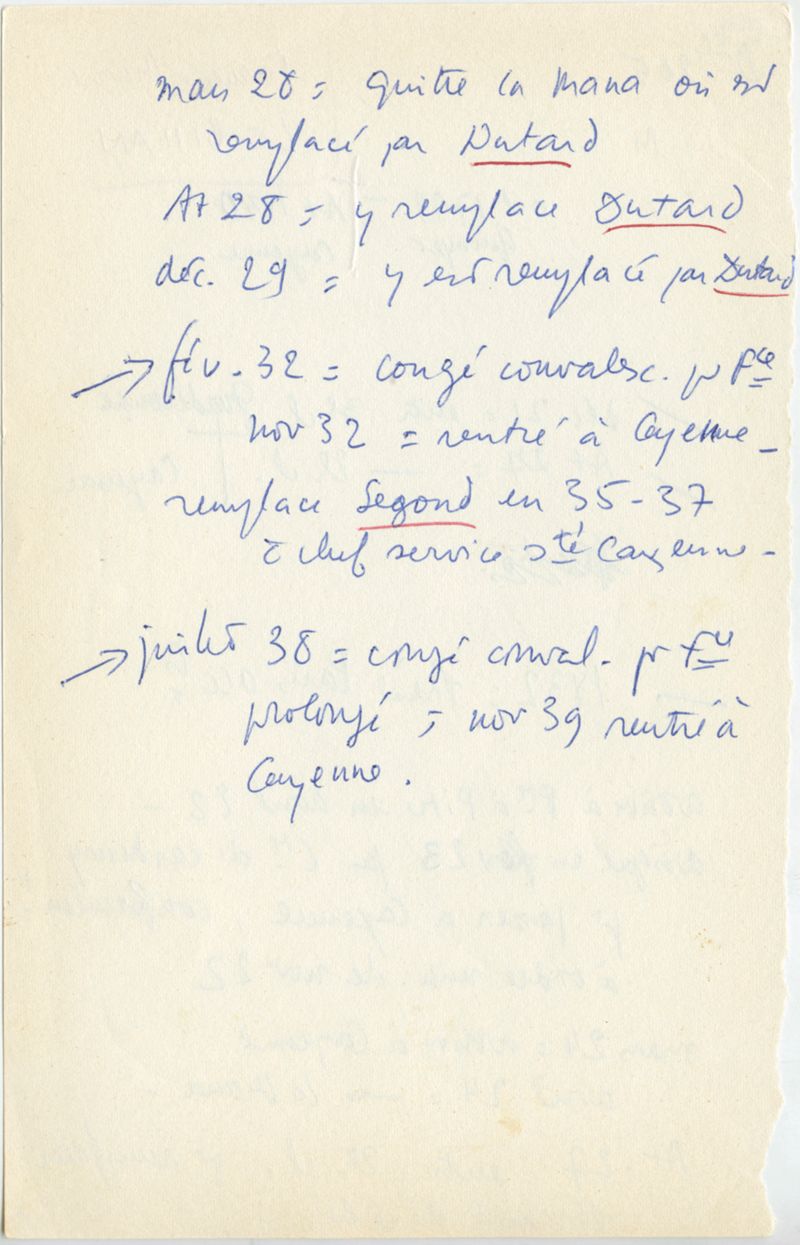 mars 28 = quitte la Mana où est
remplacé par Dutard
At 28 = y remplace Dutard
déc. 29 = y est remplacé par Dutard
→ fév. 32 = congé convalesc. pr Fce
nov 32 = rentré à Cayenne -
remplace Segond en 35-37
c chef service sté Cayenne -
→ juillet 38 = congé conval. pr Fce
prolongé = nov 39 rentré à
Cayenne.